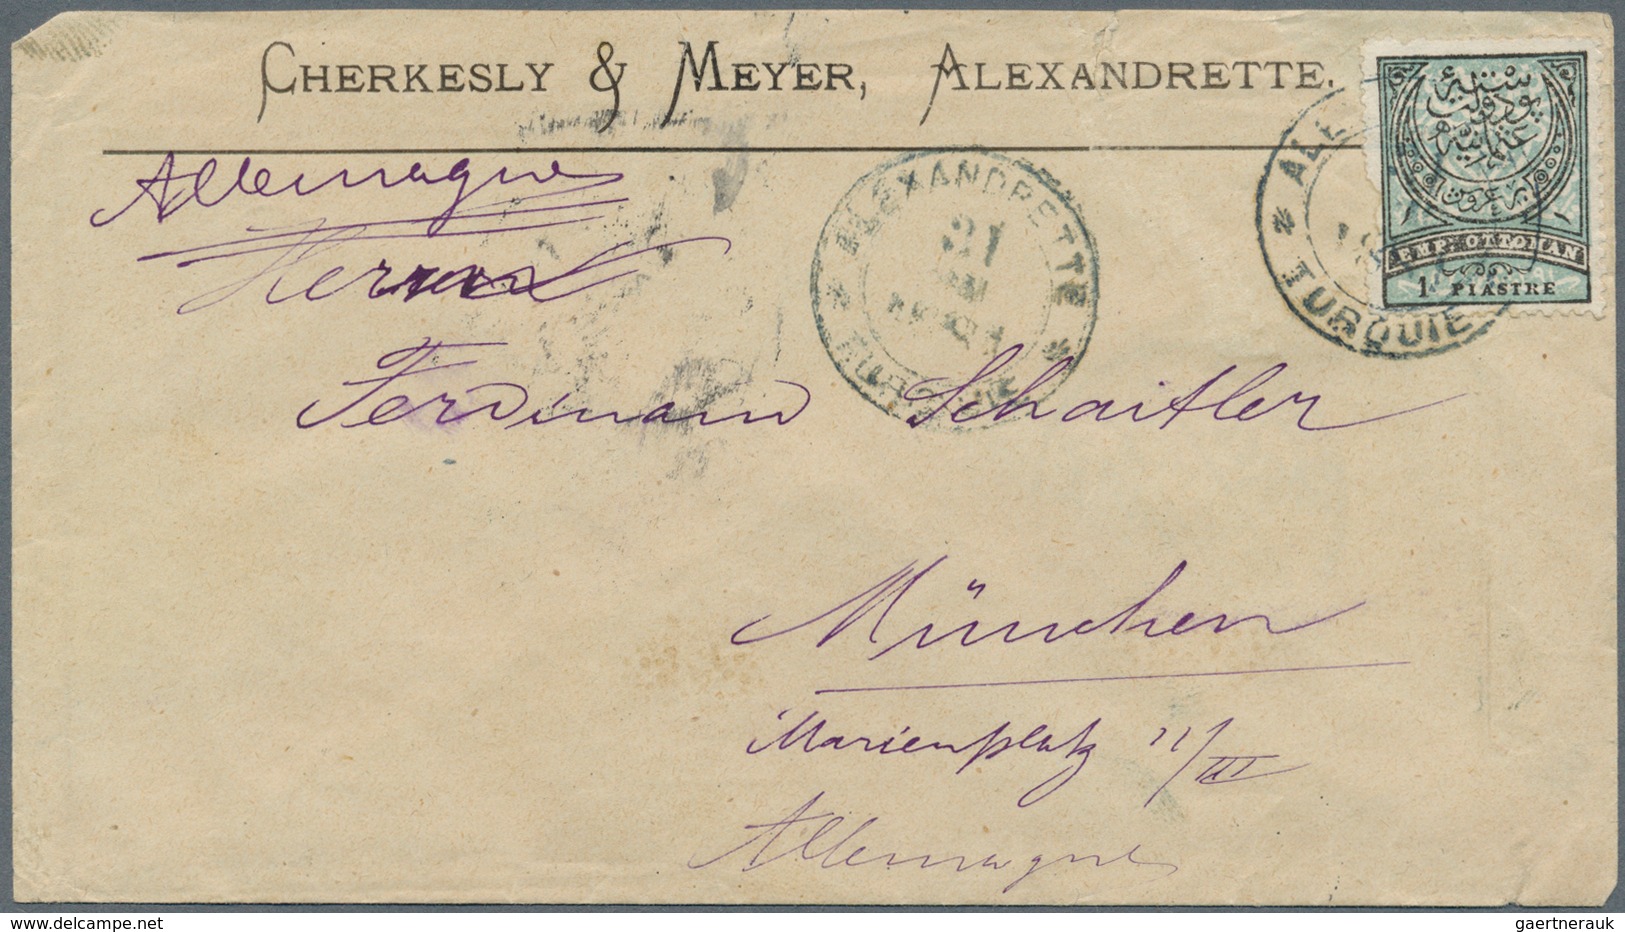 CHERKESLY & MEYER, ALEXANDRETTE.
Allemagne
Herrn
Ferdinand Schaitler
München
Marienplatz 11/III
Allemagne
* ALEXANDRETTE *
21
TURQUIE
* ALE
TURQUIE
بوستة
دولت
عثمانیه
بر غروش
EMP. OTTOMAN
1 PIASTRE
www.delcampe.net
gaertnerauk